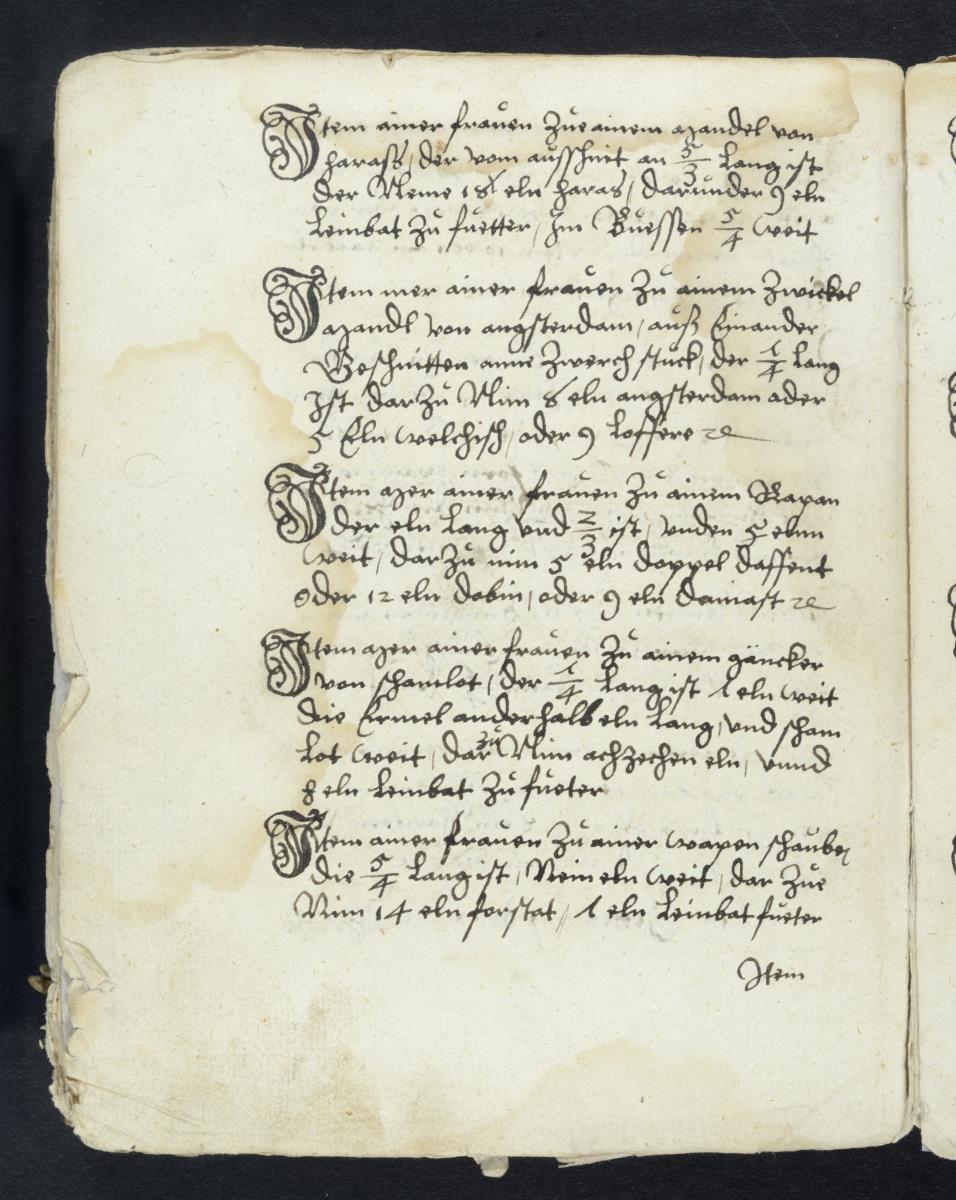 Item ainer frauen Zue ainem mandel von
harass, der vom ausschnit an 5/3 lang ist
der Neme 18 eln haras, darunder 9 eln
leinbat zu fuetter, Im Buessen 5/4 weit
Item mer ainer frauen Zu ainem Zwickel
mandl von angsterdam, auß Einander
Geschnitten anne Zwerch stuck, der 1/4 lang
Ist dar Zu Nim 8 eln angsterdam oder
5 Eln welchisch, oder 9 loffere
Item mer ainer frauen Zu ainem Kapan
der eln lang vnd 2/3 ist, vnden 5 elnn
weit, dar Zu nim 5 eln doppel daffent
oder 12 eln dobin, oder 9 eln damast
Item mer ainer frauen Zu ainem gäncker
von schamlot, der 1/4 lang ist 1 eln weit
die Ermel anderhalb eln lang, und scham
lot weit, dar zu Nim achzechen eln, vnnd
8 eln leinbat Zu fueter
Item ainer frauen Zu ainer wapen schauben
die 5/4 lang ist, Nein eln weit, dar Zue
Nim 14 eln forstat, 1 eln leinbat fueter
Item